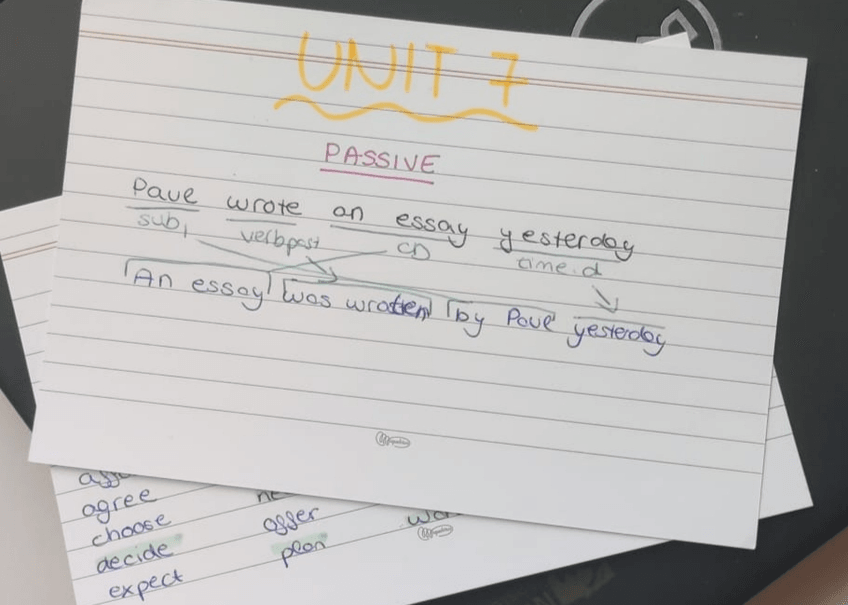 UNIT 7
PASSIVE
Paul wrote an essay yesterday
subj verb past CD time.d
An essay was wrotten by Paul yesterday
agree
choose offer
decide plan
expect